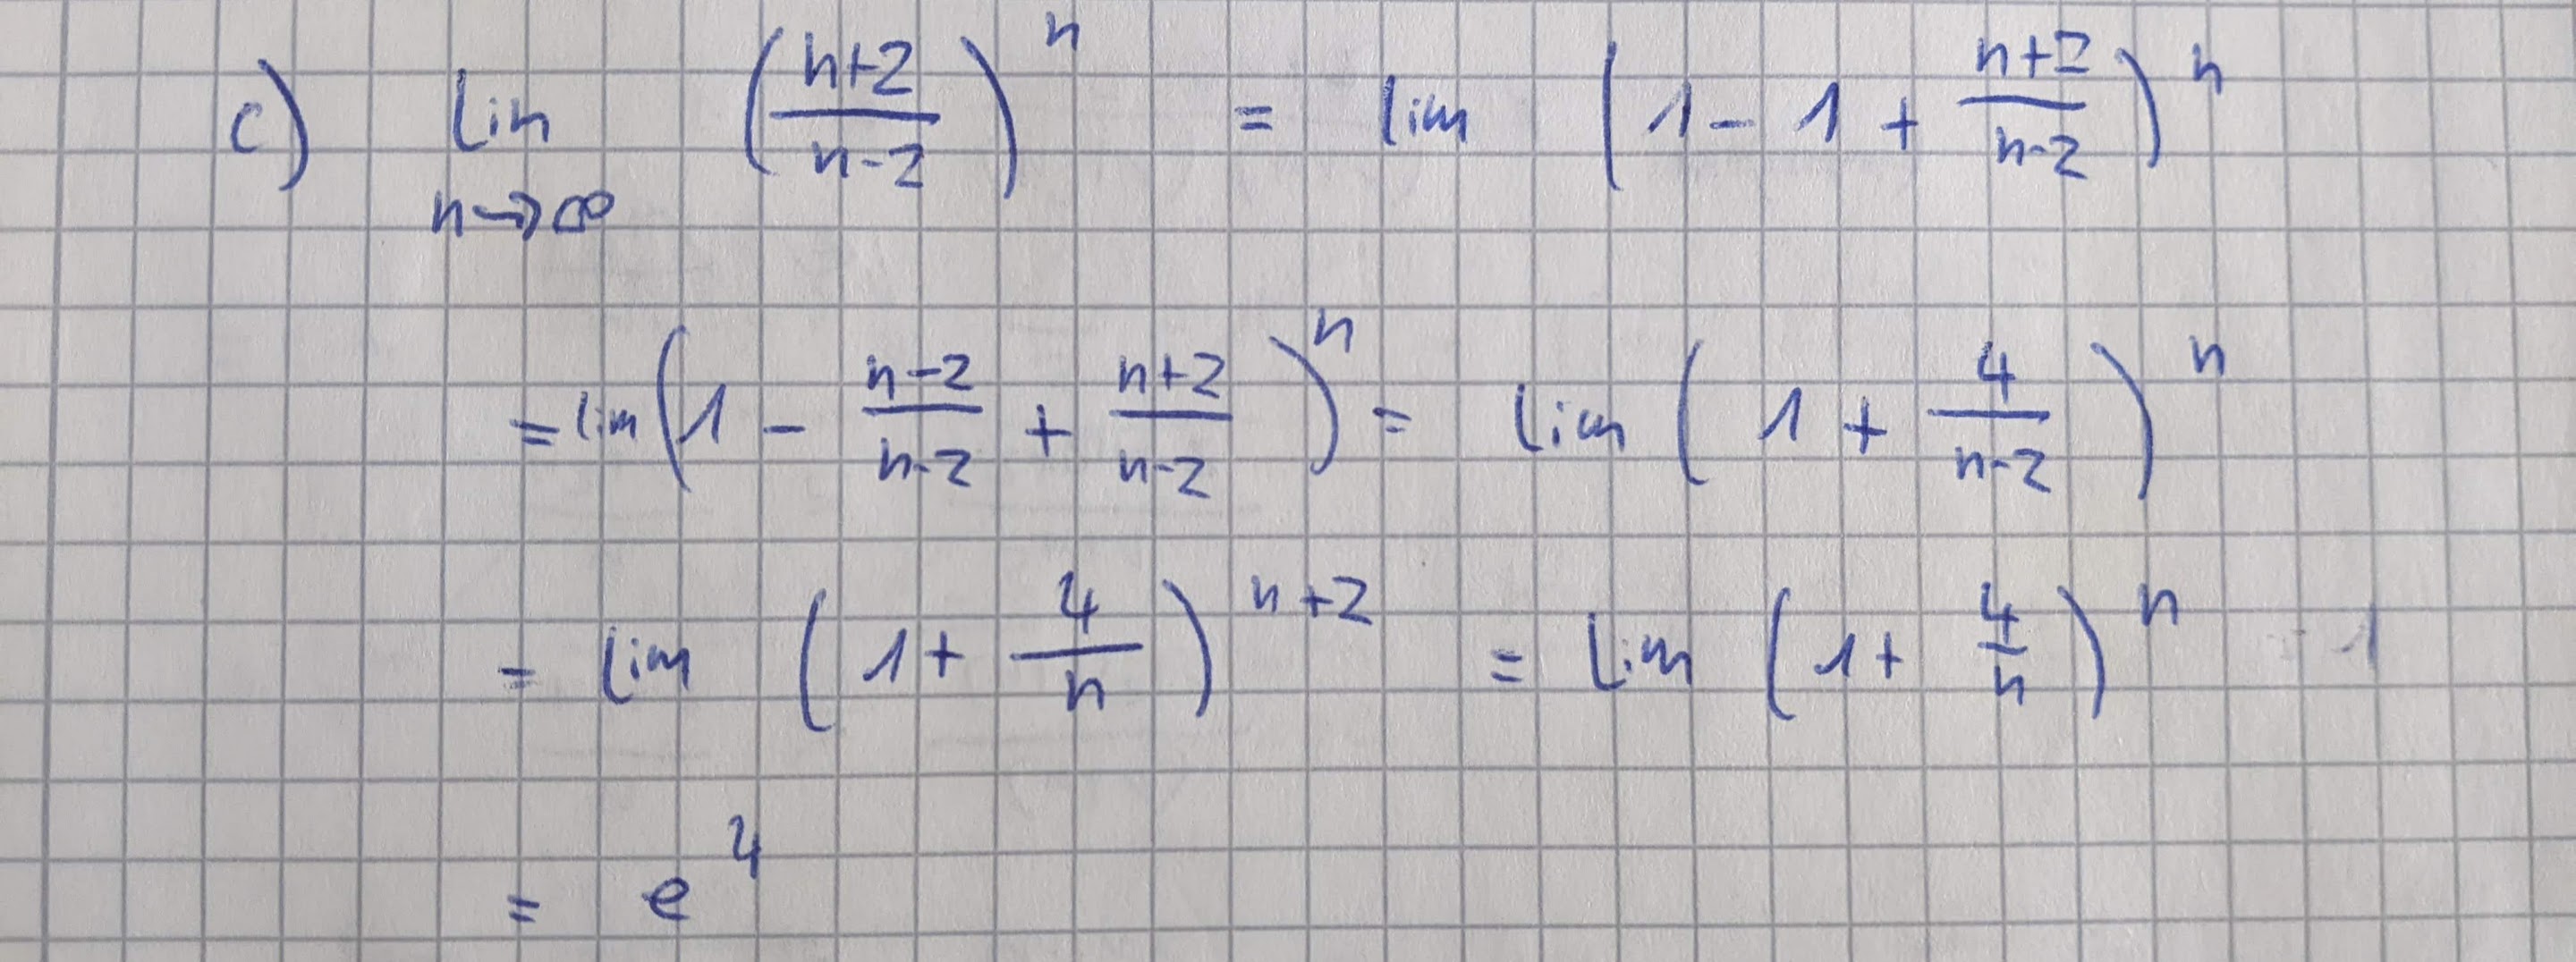 c) lim n→∞ ((n+2)/(n-2))^n = lim (1 - 1 + (n+2)/(n-2))^n
= lim (1 - (n-2)/(n-2) + (n+2)/(n-2))^n = lim (1 + 4/(n-2))^n
= lim (1 + 4/n)^(n+2) = lim (1 + 4/n)^n
= e^4